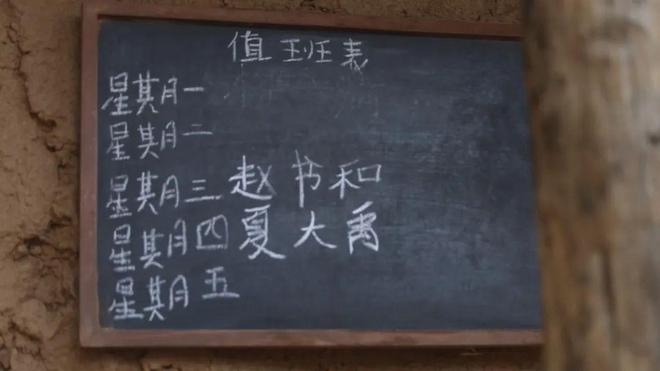 值班表
星期一
星期二
星期三 赵书和
星期四 夏大禹
星期五